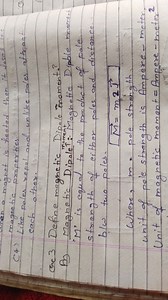 magnet is heated then it
magnetic properties.
C*4 Like poles repel and unlike poles attract
each other.
Q.3 Define magnetic Dipole moments?
A) Magnetic Dipole? Magnetic Dipole
"m" is equal to the product of pole
strength of either poles and distance
b/w two poles
M = m2l
Where, m = pole strength
unit of pole strength is Ampere - metre
Unit of magnetic moment = Ampere - metre²